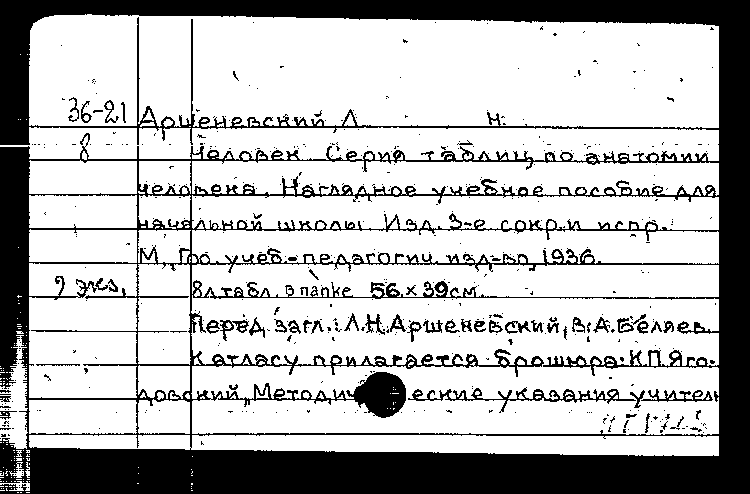 36-21 Аршеневский, Л. Н.
8 Человек. Серия таблиц по анатомии
человека. Наглядное учебное пособие для
начальной школы. Изд. 3-е сокр. и испр.
М., Гос. учеб.-педагогич. изд-во, 1936.
9 экз. 8 л. табл. в папке 56 × 39 см.
Перед загл.: Л.Н.Аршеневский, В.А.Беляев.
К атласу прилагается брошюра: К.П.Яго-
довский, „Методические указания учител